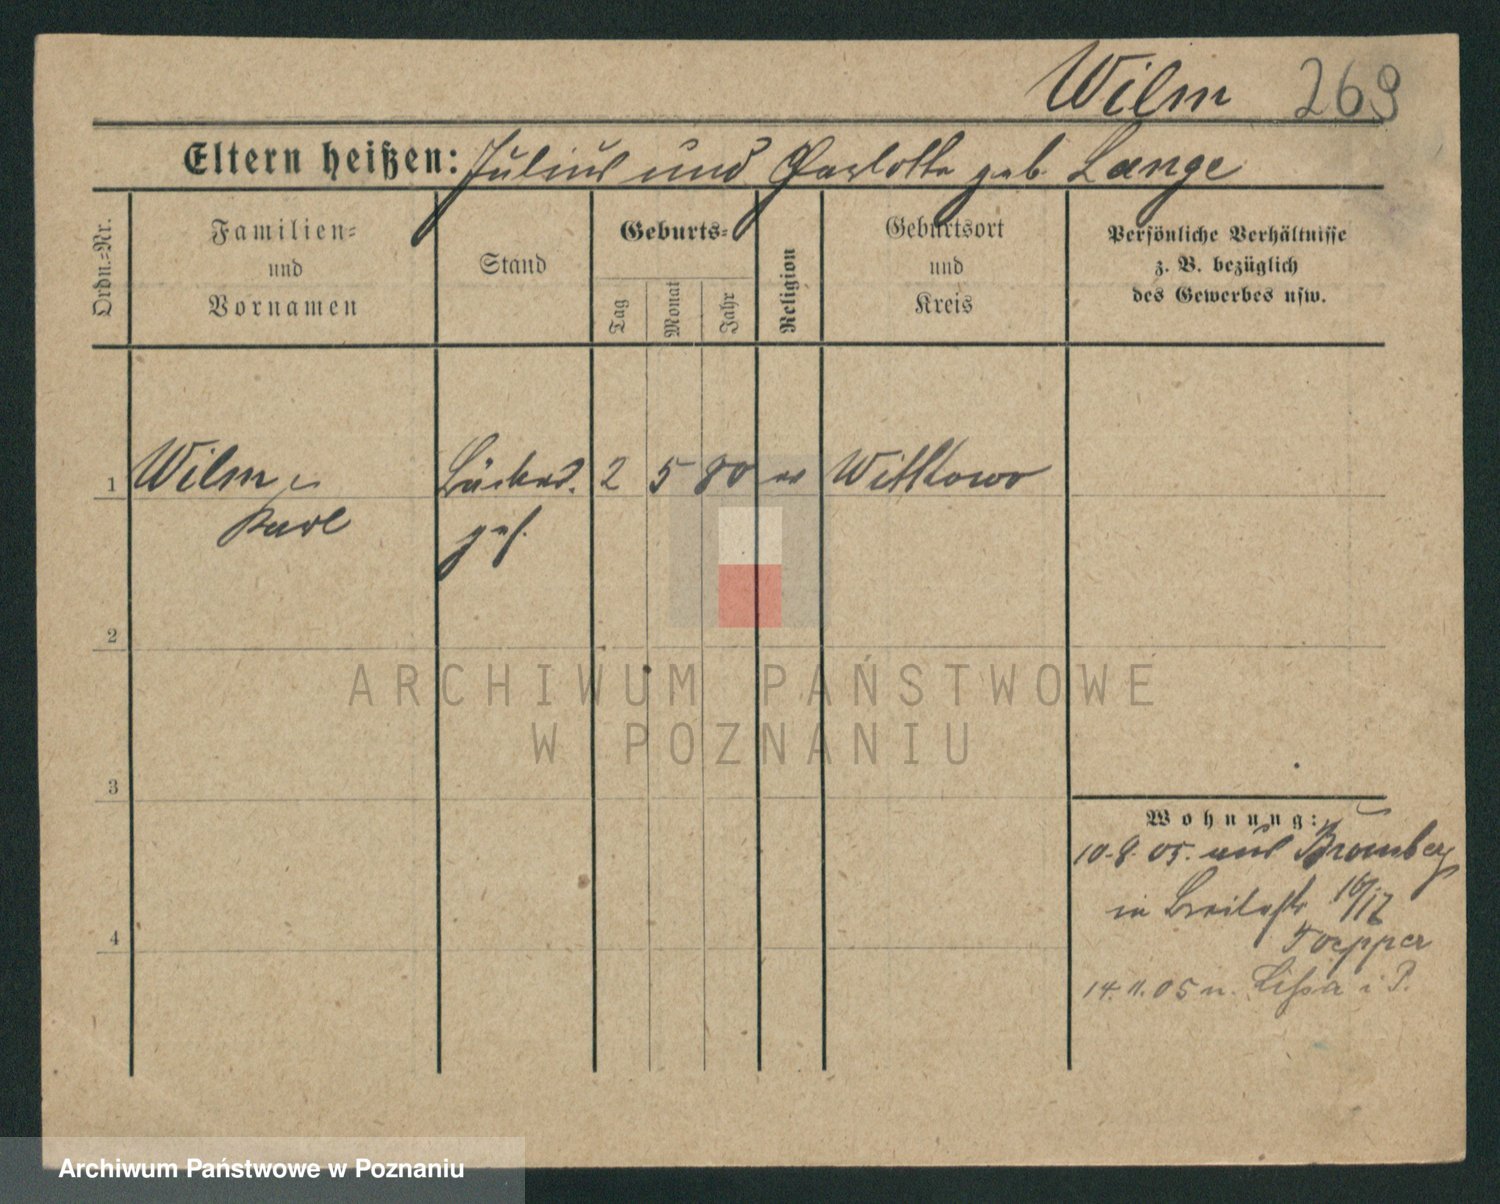 Wilm 269
Eltern heißen: Julius und Charlotte geb. Lange
Ordn.-Nr.
Familien-
und
Vornamen
Stand
Geburts-
Tag
Monat
Jahr
Religion
Geburtsort
und
Kreis
Persönliche Verhältnisse
z. B. bezüglich
des Gewerbes usw.
1 Wilm Bäcker 2 5 80 ev Witkowo
Karl ges.
2
3
4
Wohnung:
10.8.05. aus Bromberg
in Breitestr 16/17
Toepper
14.11.05 n. Lissa i P.
ARCHIWUM PAŃSTWOWE
W POZNANIU
Archiwum Państwowe w Poznaniu